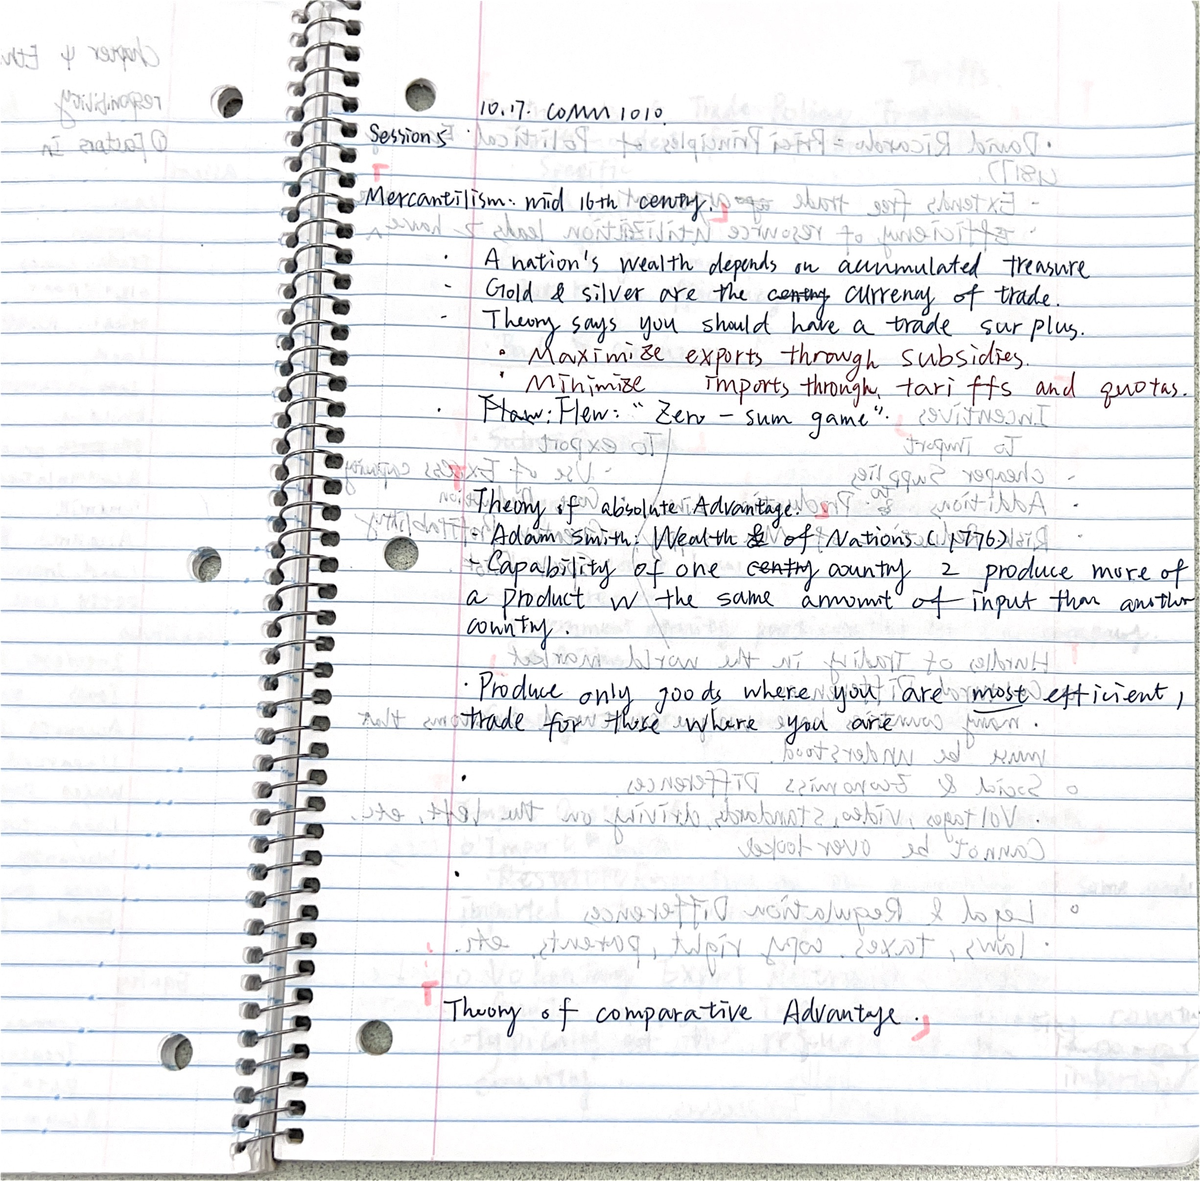 10.17. COMM 1010.
Session 5
Mercantilism: mid 16th centry.
· A nation's wealth depends on accumulated treasure
- Gold & silver are the centry currency of trade.
- Theory says you should have a trade surplus.
• Maximize exports through subsidies.
• Minimize imports through tariffs and quotas.
· Flaw: Flew: "Zero-sum game".
Theory of absolute Advantage.
· Adam Smith: Wealth & of Nations (1776)
+ Capability of one centry country 2 produce more of
a product w the same amount of input than another
country.
· Produce only goods where you are most efficient,
trade for those where you are
Theory of comparative Advantage.